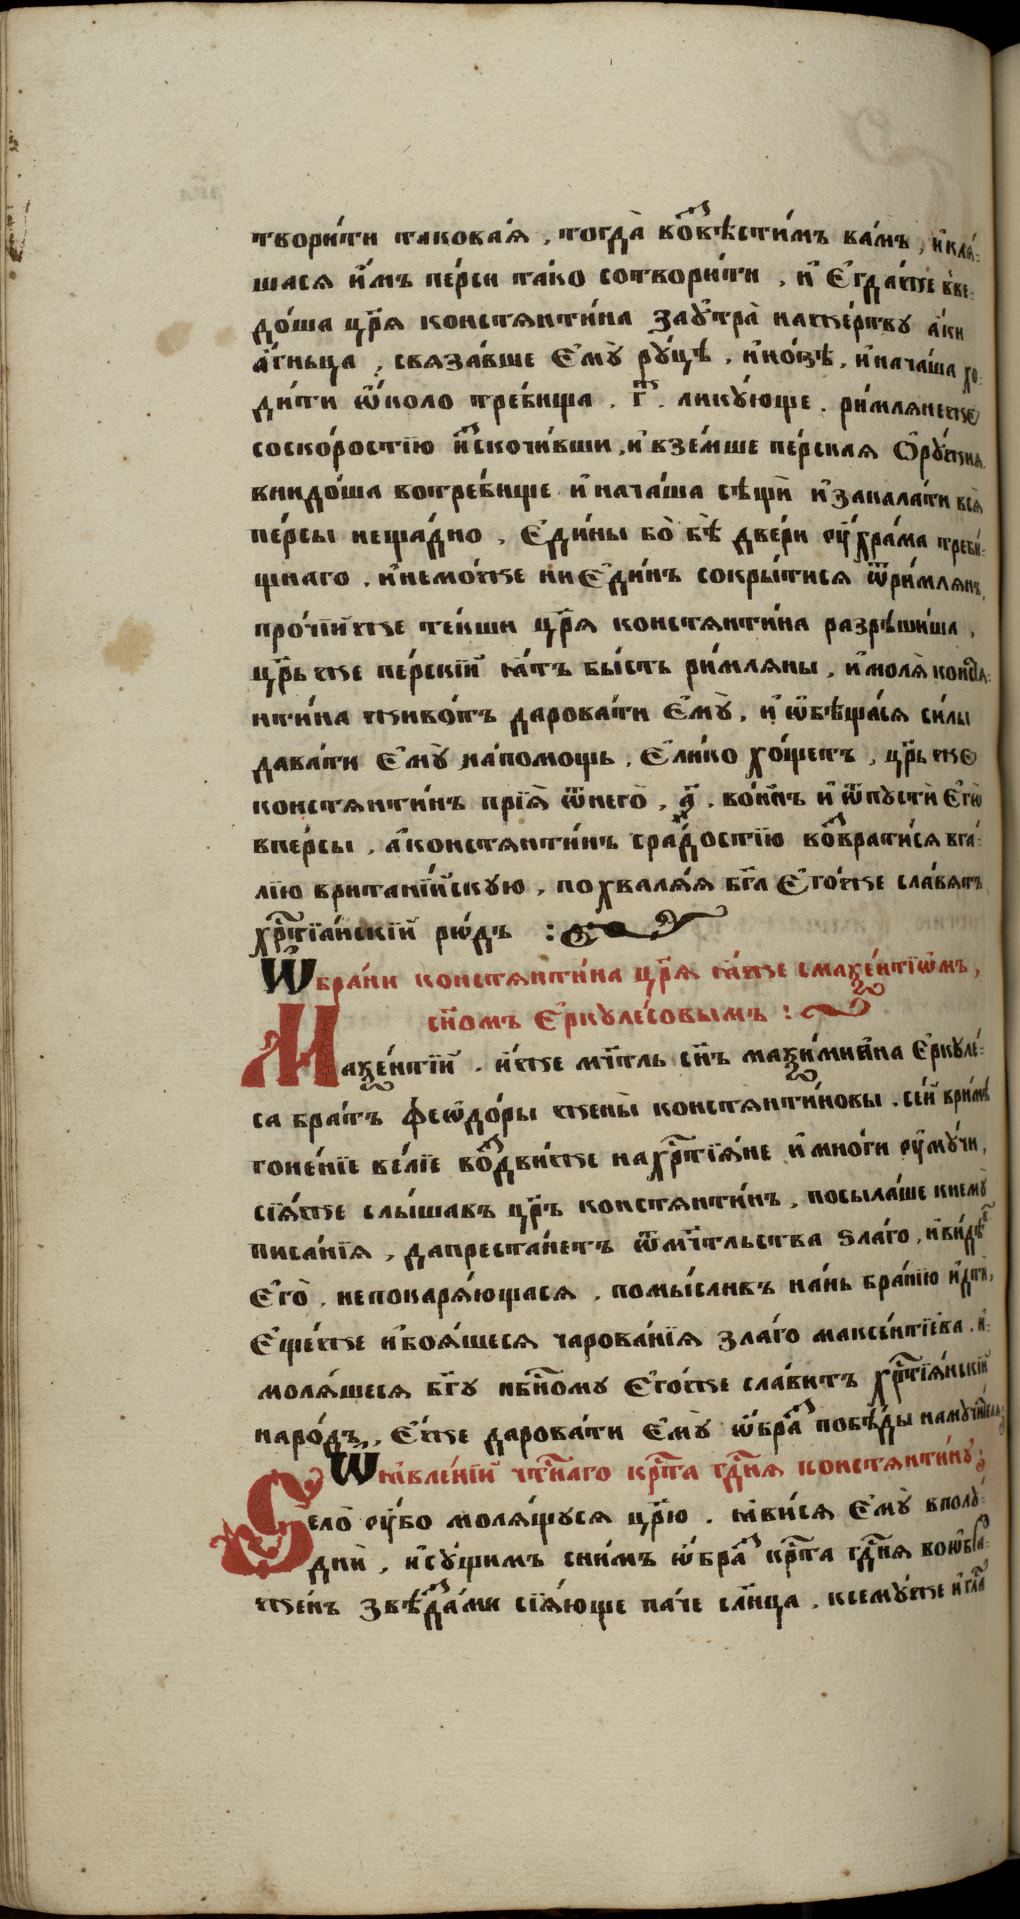 твори́ти такова́ѧ , тогда̀ во꙽звѣсти́мъ ва́мъ , и҆ клѧ́-
шасѧ и҆̀мъ пе́рси та́ко сотвори́ти , и҆ є҆гда́же вве-
до́ша цр҃ѧ констѧнти́на заѹ҆́тра на же́ртву а҆́ки
а҆́гньца , свѧза́вше є҆мꙋ̀ рꙋ́цѣ , и҆ но́зѣ , и҆ нача́ша хо-
ди́ти ѡ҆́коло тре́бища . г҃ . ликꙋ́юще . ри́млѧнеже
соско́ростїю и҆скочи́вши , и҆ взе́мше пе́рскаѧ ѻ҆рꙋ́жиѧ
внидо́ша вотре́бище и҆ нача́ша сѣщѝ и҆ закала́ти всѧ̀
пе́рсы неща́дно , є҆ди́ны бо̀ бѣ̀ две́ри ᲂу҆ хра́ма треби́-
щнаго , и҆ немо́же ни є҆ди́нъ сокры́тисѧ ѿ ри́млѧнъ ,
про́чїйже те́кши цр҃ѧ констѧнти́на разрѣши́ша ,
цр҃ь же пе́рскїй ꙗ҆́тъ бы́сть ри́млѧны , и҆ молѧ̀ констѧ-
нти́на живо́тъ дарова́ти є҆мꙋ̀ , и҆ ѡ҆бѣща́сѧ си́лы
дава́ти є҆мꙋ̀ на́помощь , є҆ли́ко хо́щетъ , цр҃ь же
констѧнти́нъ прїѧ̀ ѿ него̀ , а҃ . во́инъ и҆ ѿпꙋстѝ є҆го̀
впе́рсы , а҆ констѧнти́нъ сра́достїю во꙽зврати́сѧ вга́-
лїю врита́нїйскую , похвалѧ́ѧ бг҃а є҆го́же сла́вѧтъ
хрⷭ҇тїа́нскїй рѡ́дъ :
Ѡ҆ бра́ни констѧнти́на цр҃ѧ ꙗ҆́же смаѯе́нтїѡмъ ,
сн҃омъ є҆ркуле́совымъ :
Маѯе́нтїй . и҆́же мч҃тль сн҃ъ маѯимиа́на є҆ркуле́-
са бра́тъ ѳеѡдо́ры жены̀ констѧнти́новы . се́й в ри́мѣ
гоне́нїе ве́лїе во꙽здви́же на хрⷭ҇тїѧ́не и҆ мно́ги ᲂу҆мꙋ́чи ,
сїѧ́же слы́шавъ цр҃ь констѧнти́нъ , посыла́ше кнемꙋ̀
писа́нїѧ , да преста́нетъ ѿ мч҃тльства ѕла́го , и҆ ви́дѣ
є҆го̀ , непокарѧ́ющасѧ , помы́сливъ на́нь бра́нїю и҆дтѝ ,
є҆ще́же и҆ боѧ́шесѧ чарова́нїѧ зла́го максе́нтїева . и҆-
молѧ́шесѧ бг҃у нбⷭ҇ному є҆го́же сла́витъ хрⷭ҇тїѧ́нскїй
наро́дъ , є҆́же дарова́ти є҆мꙋ̀ ѡ҆́браꙁ побѣ́ды на мꙋчи́телѧ :
Ѡ҆ ꙗ҆вле́нїи чтⷭ҇наго крⷭ҇та гдⷭ҇нѧ констѧнти́ну :
Ѕело̀ ᲂу҆́бо молѧ́щусѧ цр҃ю . ꙗ҆ви́сѧ є҆мꙋ̀ вполꙋ́-
днѝ , и҆ сꙋ́щимъ сни́мъ ѡ҆́браꙁ крⷭ҇та гдⷭ҇нѧ воѡ҆бра-
же́нъ звѣзда́ми сїѧ́юще па́че сл҃нца , ксемꙋ́же и҆ гла́